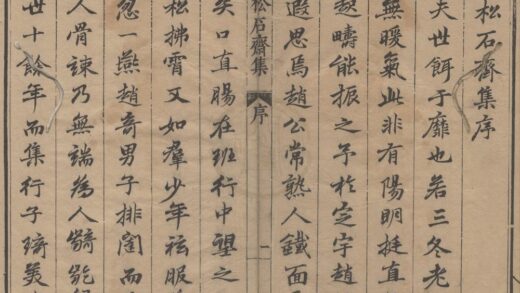 松石齋集序
夫世餌于靡也若三冬老
無暖氣此非有陽明挺直
越疇能振之予於定宇趙
遐思焉趙公常熟人鐵面
松石齋集 序 一
矢口直腸在班行中望之
松拂霄又如羣少年袨服
忽一燕趙奇男子排闥而
人骨竦乃無端為人齮齕
世十餘年而集行予琦美